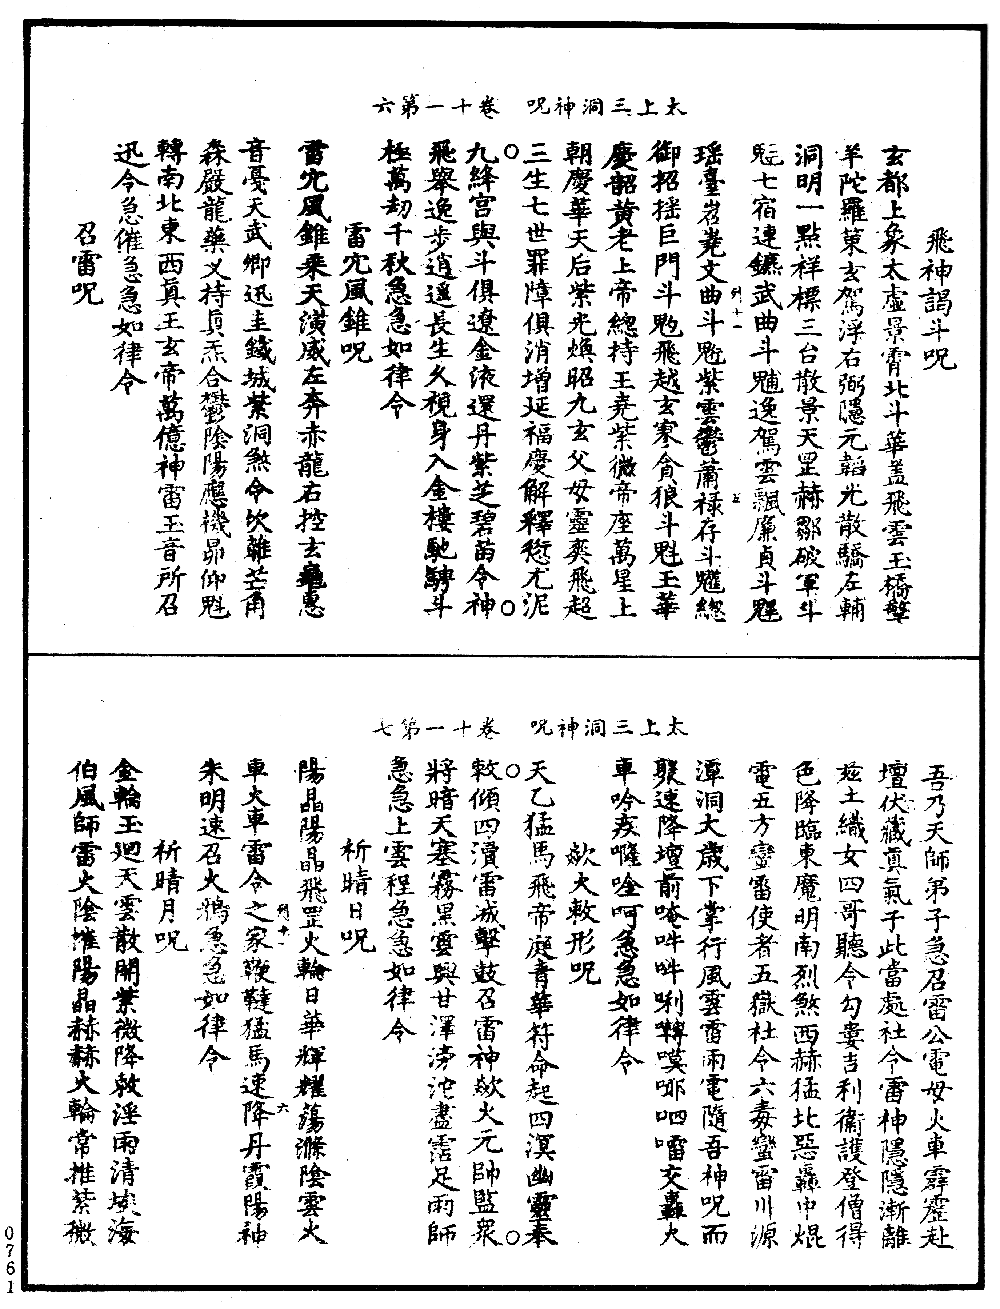 太上三洞神呪　卷十一第六
飛神謁斗呪
玄都上象太虛景霄北斗華蓋飛雲玉橋擎
羊陀羅策玄駕浮右弼隱元韜光散驕左輔
洞明一點祥標三台散景天罡赫鄒破軍斗
魒七宿連鑣武曲斗䰢逸駕雲飄廉貞斗䰢
瑤臺岧嶤文曲斗魓紫雲鬱蕭祿存斗䰫總
御招搖巨門斗䰪飛越玄寒貪狼斗魁玉華
慶韶黃老上帝總持王堯紫微帝座萬星上
朝慶華天后紫光煥昭九玄父母靈爽飛超
三生七世罪障俱消增延福慶解釋愆尤泥
九絳宮與斗俱遼金液還丹紫芝碧苗令神
飛舉逸步逍遥長生久視身入金樓馳騁斗
極萬劫千秋急急如律令
雷穴風錐呪
雷穴風錐乘天潢威左奔赤龍右控玄龜惠
音憂天武卿迅圭鐵城紫洞煞令坎離芒角
森嚴龍藥义持眞炁合鬱陰陽應機昂仰魁
轉南北東西眞王玄帝萬億神雷玉音所召
迅令急催急急如律令
召雷呪
列十一
五
太上三洞神呪　卷十一第七
吾乃天師弟子急召雷公電母火車霹靂赴
壇伏藏眞氣子此當處社令雷神隱隱漸離
玆土織女四哥聽令勾婁吉利衞護登僧得
色降臨東魔明南烈煞西赫猛北惡轟中焜
電五方蠻雷使者五嶽社令六毒蠻雷川源
潭洞大歲下掌行風雲雷雨電隨吾神呪而
聚速降壇前唵吽吽唎囀嗼哪呬㗲交轟火
車吟疾㘕唑呵急急如律令
歘火敕形呪
天乙猛馬飛帝庭青華符命起四溟幽靈奉
敕傾四瀆雷城擊鼓召雷神歘火元帥監衆
將暗天塞霧黑雲興甘澤滂沱盡霑足雨師
急急上雲程急急如律令
祈晴日呪
陽晶陽晶飛罡火輪日華輝耀蕩滌陰雲火
車火車雷令之家鞭韃猛馬速降丹霞陽神
朱明速召火鴉急急如律令
祈晴月呪
金輪玉廻天雲散開紫微降敕淫雨清埃海
伯風師雷火陰摧陽晶赫赫火輪常推紫微
列十一
六
0761